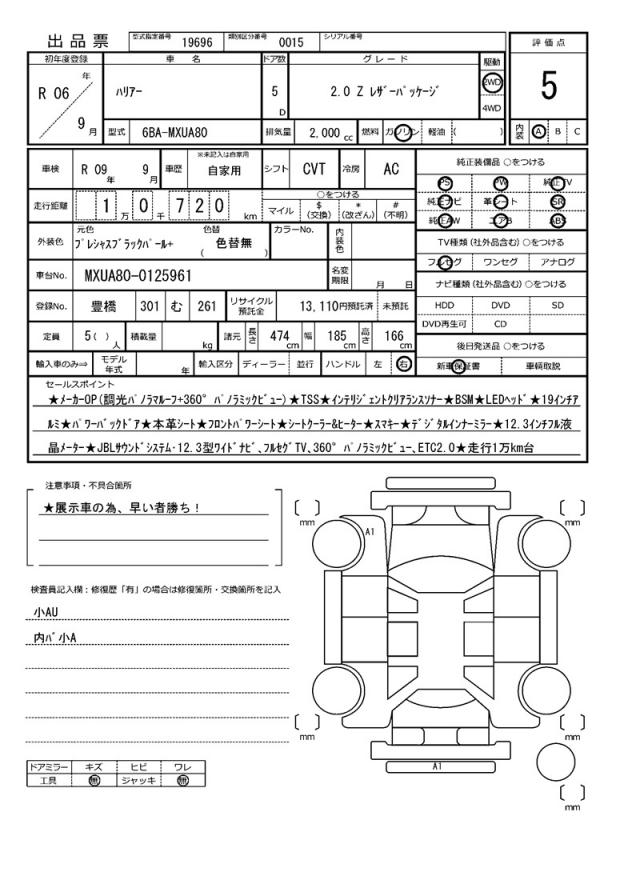 出品票 型式指定番号 19696 類別区分番号 0015 シリアル番号
初年度登録 車名 ドア数 グレード 駆動 評価点
R 06 年 9 月 ハリアー 5 D 2.0 Z レザーパッケージ 2WD 4WD 5
型式 6BA-MXUA80 排気量 2,000 cc 燃料 ガソリン 軽油 ( ) 内装 A B C
車検 R 09 年 9 月 車歴 ※未記入は自家用 自家用 シフト CVT 冷房 AC 純正装備品 ○をつける
PS PW 純正TV
走行距離 1 万 0 千 7 2 0 km ○をつける マイル $ (交換) * (改ざん) # (不明) 純正ナビ 革シート SR
純正AW エアB ABS
外装色 元色 プレシャスブラックパール+ 色替 ( 色替無 ) カラーNo. 内装色 TV種類 (社外品含む) ○をつける
フルセグ ワンセグ アナログ
車台No. MXUA80-0125961 名変期限 月 日 ナビ種類 (社外品含む) ○をつける
登録No. 豊橋 301 む 261 リサイクル預託金 13,110円預託済 未預託 HDD DVD SD
DVD再生可 CD
定員 5( ) 人 積載量 kg 諸元 長さ 474 cm 幅 185 cm 高さ 166 cm 後日発送品 ○をつける
輸入車のみ⇒ モデル年式 年 輸入区分 ディーラー 並行 ハンドル 左 右 新車保証書 車輌取説
セールスポイント
★メーカーOP(調光パノラマルーフ+360°パノラミックビュー)★TSS★インテリジェントクリアランスソナー★BSM★LEDヘッド★19インチア
ルミ★パワーバックドア★本革シート★フロントパワーシート★シートクーラー&ヒーター★スマキー★デジタルインナーミラー★12.3インチフル液
晶メーター★JBLサウンドシステム・12.3型ワイドナビ、フルセグTV、360°パノラミックビュー、ETC2.0★走行1万km台
注意事項・不具合箇所
★展示車の為、早い者勝ち！
検査員記入欄：修復歴「有」の場合は修復箇所・交換箇所を記入
小AU
内バ小A
ドアミラー キズ ヒビ ワレ
工具 無 ジャッキ 無
[ ] mm
[ ] mm
A1
[ ] mm
[ ] mm
A1
[ ] mm